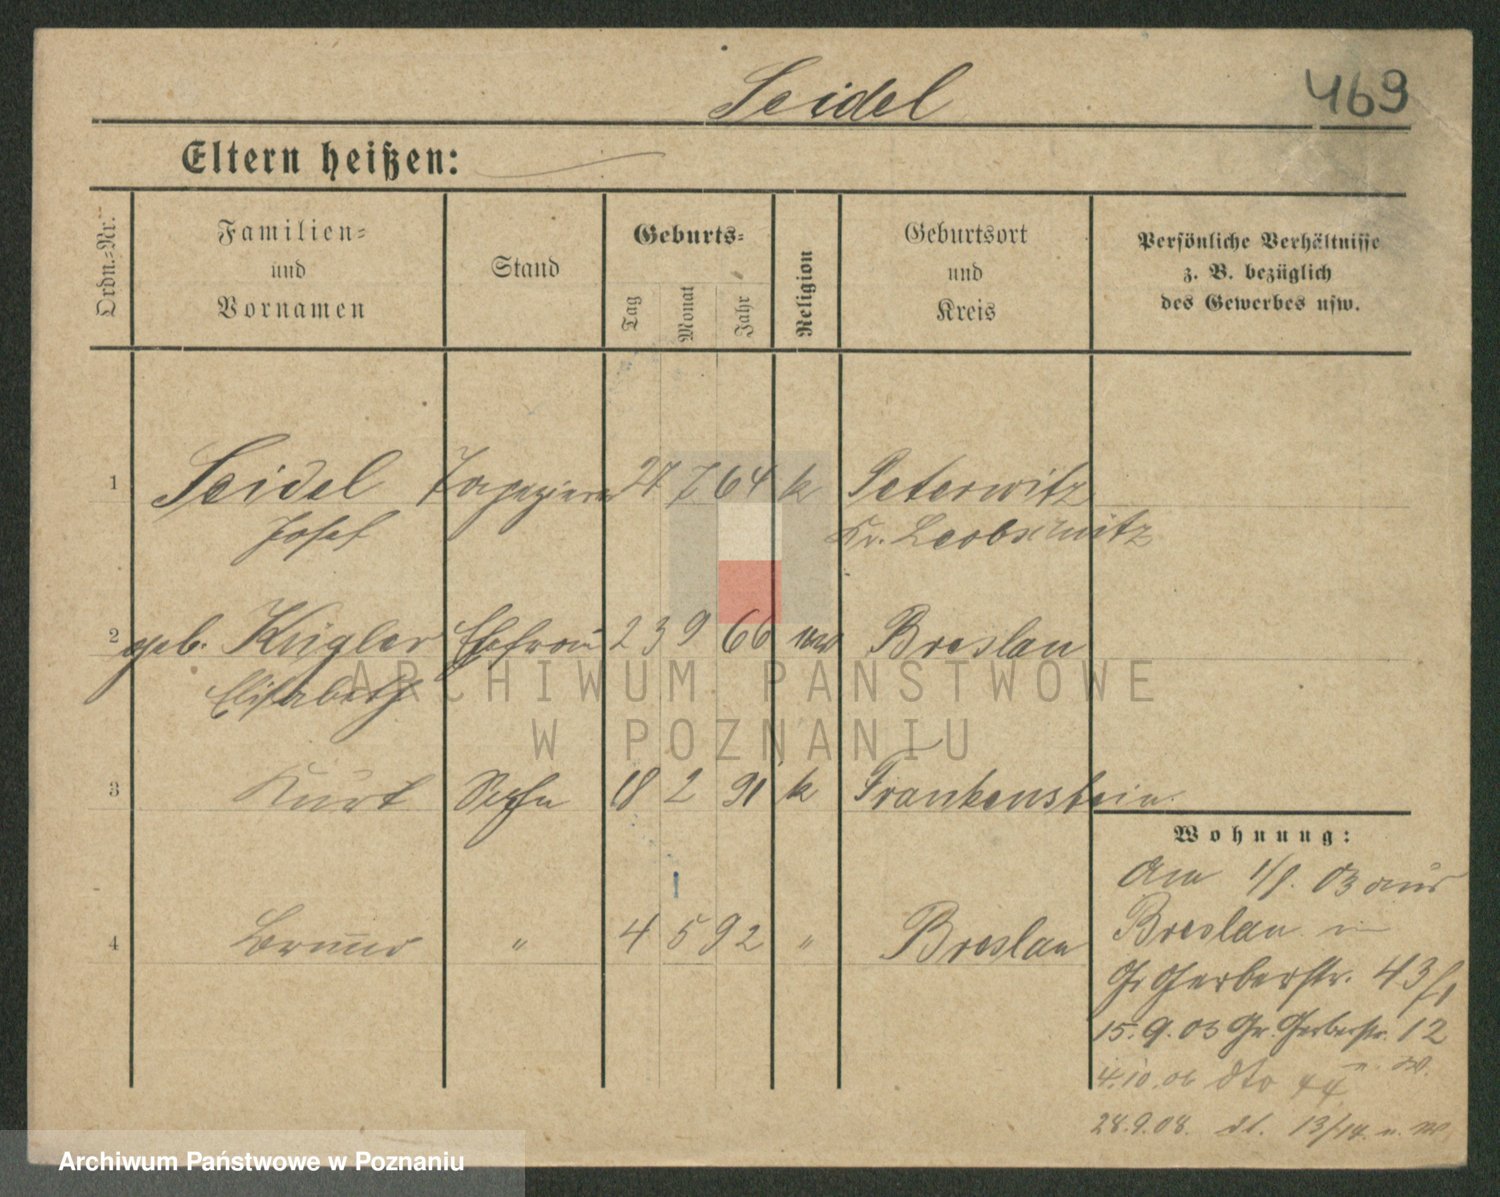 Seidel 469
Eltern heißen:
Ordn.-Nr.
Familien-
und
Vornamen
Stand
Geburts-
Tag
Monat
Jahr
Religion
Geburtsort
und
Kreis
Persönliche Verhältnisse
z. B. bezüglich
des Gewerbes usw.
1 Seidel Tapezierer 27 7 64 k Peterwitz
Josef Kr. Leobschwitz
2 geb. Kügler Ehefrau 23 9 66 Breslau
Elisabeth
ARCHIWUM PAŃSTWOWE
W POZNANIU
3 Kurt Sohn 18 2 91 k Frankenstein
Wohnung:
Am 1/9. 03 aus
4 Bruno " 4 5 92 " Breslau
Breslau in
Gr Gerberstr. 43
15.9.03 Gr. Gerberstr. 12
4.10.06 dto 44
28.9.08. dt. 13/14
Archiwum Państwowe w Poznaniu